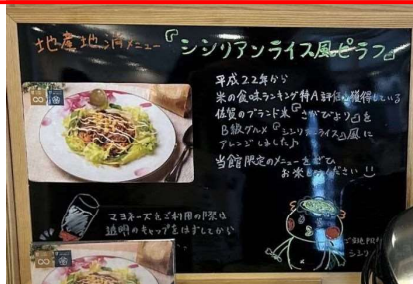 地産地消メニュー『シシリアンライス風ピラフ』
平成22年から
米の食味ランキング特A評価を獲得している
佐賀のブランド米『さがびより』を
B級グルメ『シシリアンライス』風に
アレンジしました♪
当館限定のメニューをぜひ
お米ください!!
マヨネーズをご利用の際は
透明のキャップをはずしてから
ご当地PR
シシリ